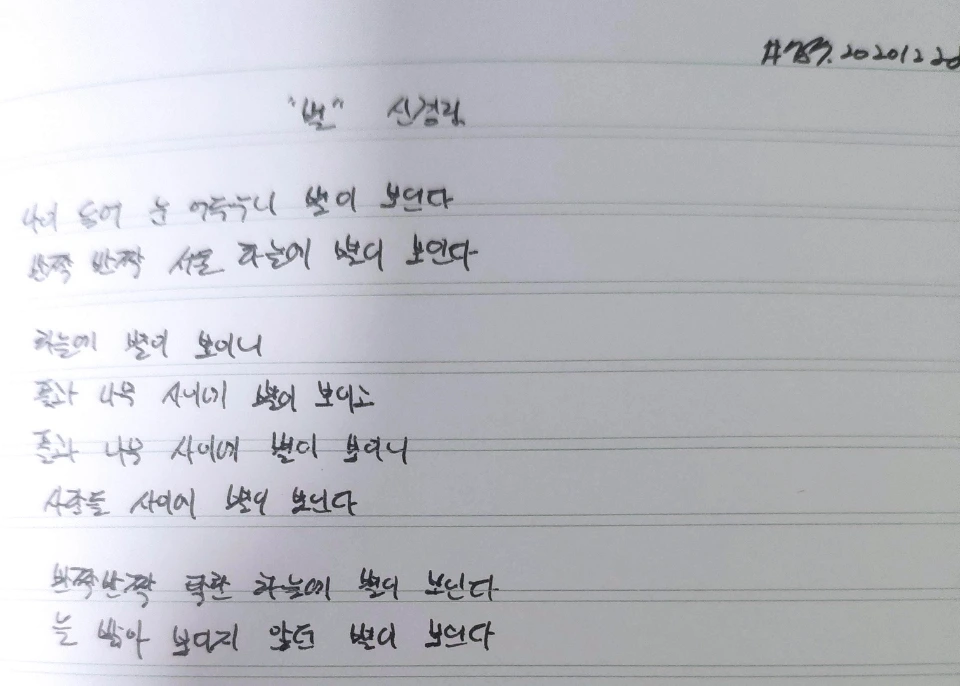 #753. 20201220
"별" 신경림
나이 들어 눈 어두우니 별이 보인다
반짝 반짝 서울 하늘에 별이 보인다
하늘에 별이 보이니
풀과 나무 사이에 별이 보이고
풀과 나무 사이에 별이 보이니
사람들 사이에 별이 보인다
반짝반짝 탁한 하늘에 별이 보인다
눈 밝아 보이지 않던 별이 보인다